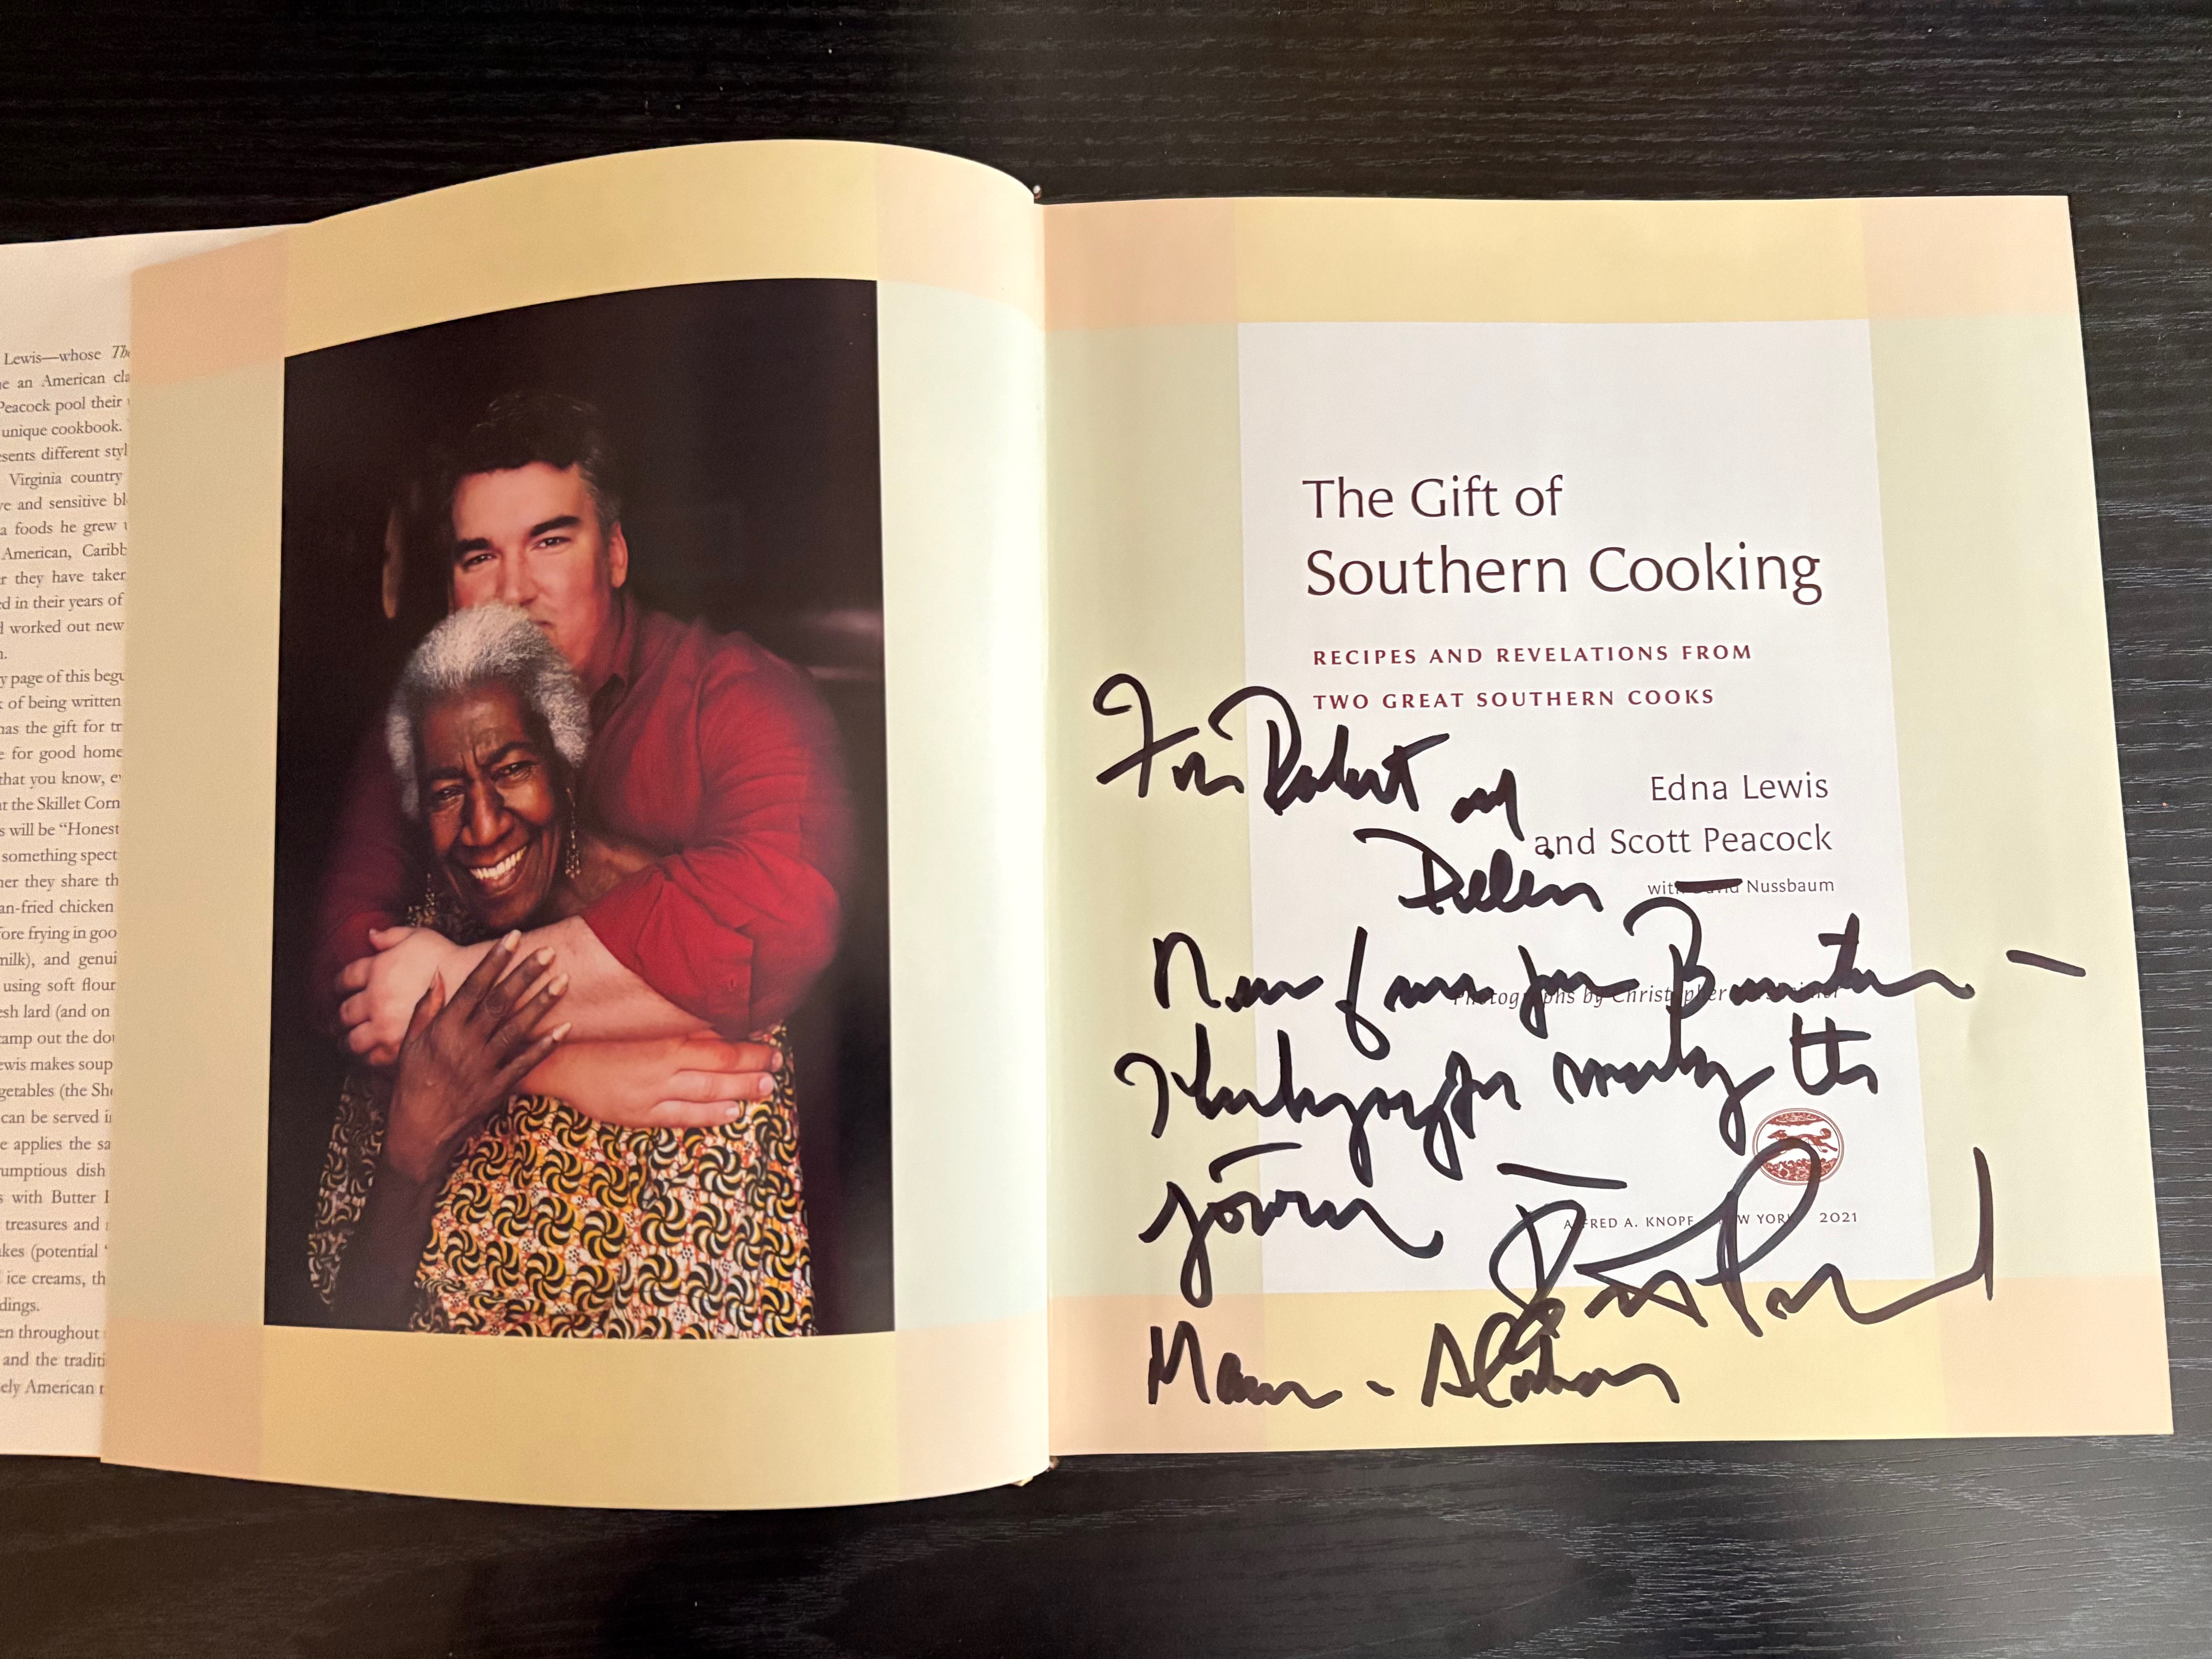 Lewis—whose The
e an American cla
Peacock pool their
unique cookbook.
esents different styl
Virginia country
ve and sensitive bl
a foods he grew
American, Caribb
r they have taken
ed in their years of
d worked out new
y page of this begu
of being written
has the gift for tr
e for good home
that you know, e
at the Skillet Corn
s will be “Honest
something spect
her they share th
an-fried chicken
ore frying in goo
milk), and genui
using soft flour
esh lard (and on
amp out the do
ewis makes soup
getables (the Sh
can be served i
e applies the sa
umptious dish
s with Butter
treasures and
akes (potential
ice creams, th
dings.
en throughout
and the traditi
ely American
The Gift of
Southern Cooking
RECIPES AND REVELATIONS FROM
TWO GREAT SOUTHERN COOKS
For Robert and
Edna Lewis
and Scott Peacock
with David Nussbaum
Photographs by Christopher
Thank you for making the
journey —
ALFRED A. KNOPF NEW YORK 2021
Marion - Alabama